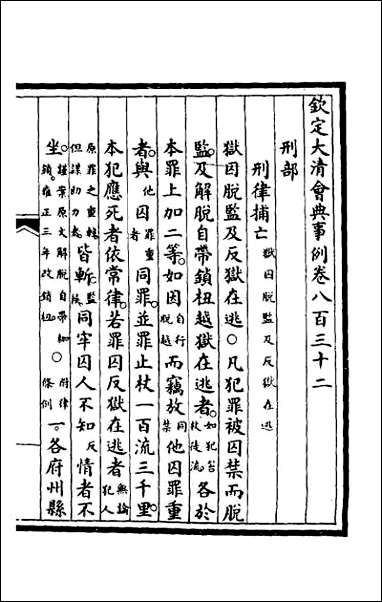 欽定大清會典事例卷八百三十二
刑部
刑律捕亡獄囚脫監及反獄在逃
獄囚脫監及反獄在逃○凡犯罪被囚禁而脫
監及解脫自帶鎖杻越獄在逃者如犯笞杖徒流各於
本罪上加二等如因自行脫越而竊放同禁他囚罪重
者與他囚罪重者同罪並罪止杖一百流三千里
本犯應死者依常律若罪囚反獄在逃者無論犯人
原罪之重輕但謀助力者皆斬監候同牢囚人不知反情者不
坐謹案原文解脫自帶枷鎖雍正三年改鎖杻○附律條例一各府州縣